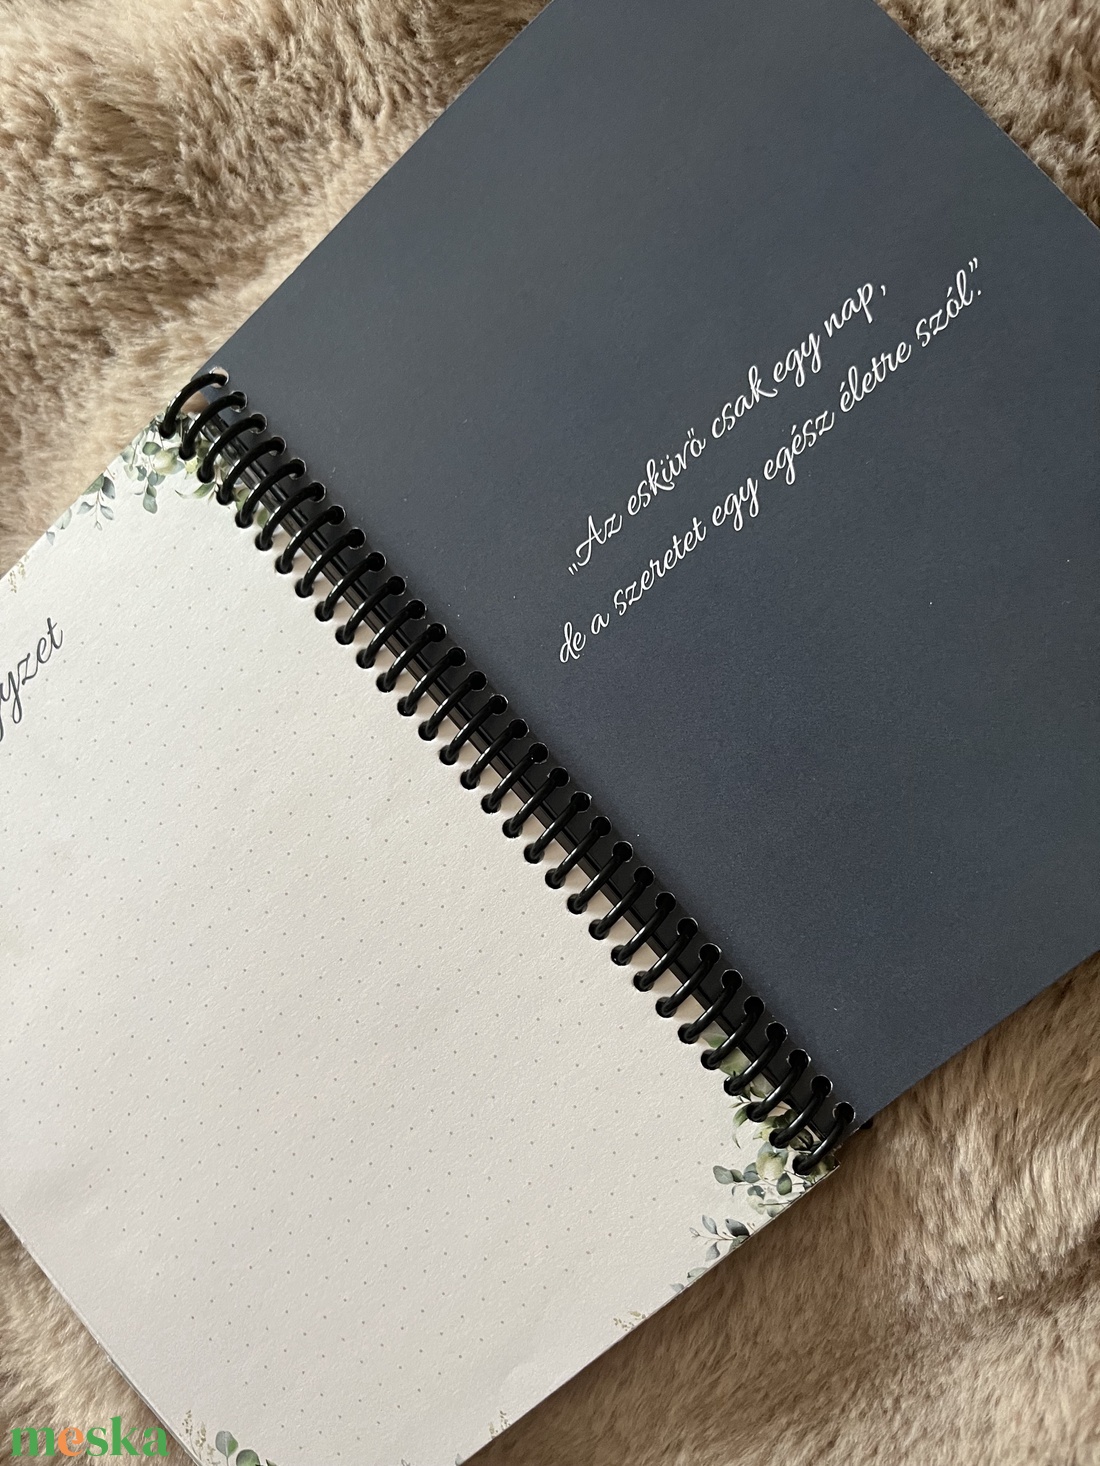 „Az esküvő csak egy nap,
de a szeretet egy egész életre szól.”
meska